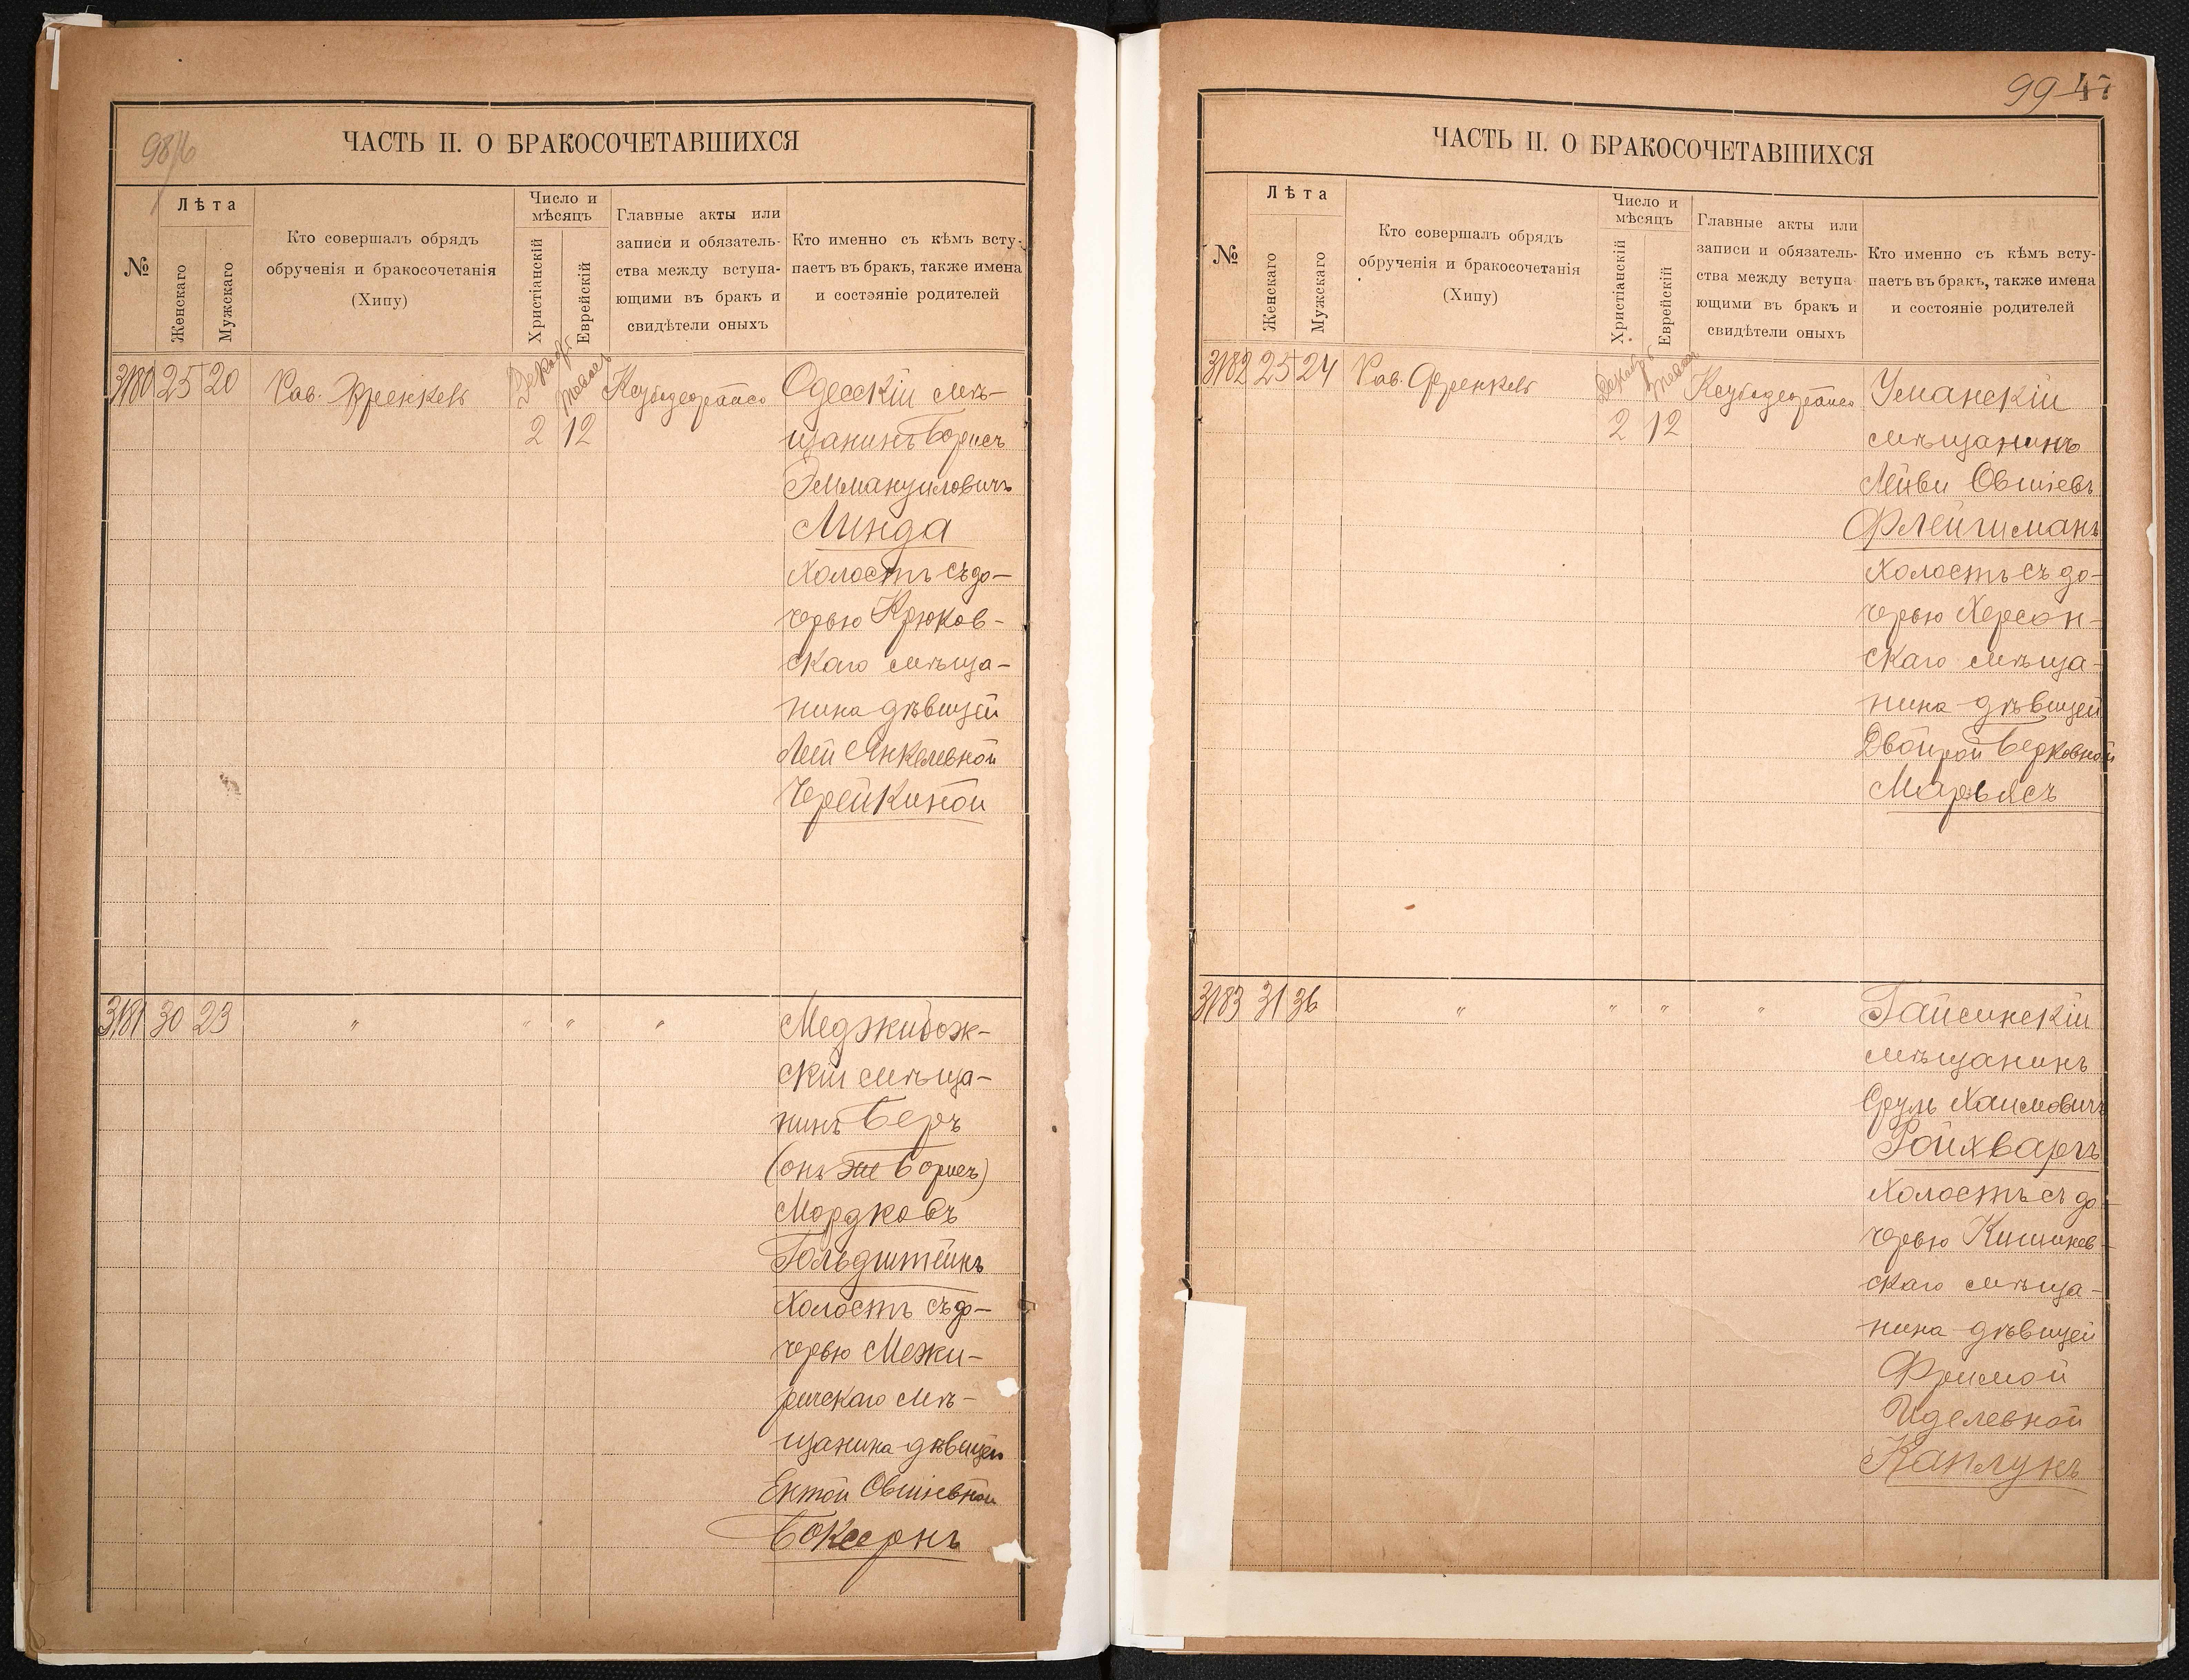 98/6
ЧАСТЬ II. О БРАКОСОЧЕТАВШИХСЯ
№
Лѣта
Женскаго
Мужскаго
Кто совершалъ обрядъ
обрученія и бракосочетанія
(Хипу)
Число и
мѣсяцъ
Христіанскій
Еврейскій
Главные акты или
записи и обязатель-
ства между вступа-
ющими въ бракъ и
свидѣтели оныхъ
Кто именно съ кѣмъ всту-
паетъ въ бракъ, также имена
и состояніе родителей
3180 25 20 Рав. Френкель Декабрь 2 12 Одесскій мѣ-
щанинъ Борисъ
Эммануиловичъ
Линда
Холостъ съ до-
черью Крюков-
скаго мѣща-
нина дѣвицей
Леей Янкелевной
Черейкиной
3181 30 23 " " " " Меджибож-
скій мѣща-
нинъ Беръ
(онъ же Борисъ)
Мордковъ
Гольдштейнъ
Холостъ съ до-
черью Межи-
ричскаго мѣ-
щанина дѣвицей
Ентой Овшіевной
Боксернъ
99 47
ЧАСТЬ II. О БРАКОСОЧЕТАВШИХСЯ
№
Лѣта
Женскаго
Мужскаго
Кто совершалъ обрядъ
обрученія и бракосочетанія
(Хипу)
Число и
мѣсяцъ
Христіанскій
Еврейскій
Главные акты или
записи и обязатель-
ства между вступа-
ющими въ бракъ и
свидѣтели оныхъ
Кто именно съ кѣмъ всту-
паетъ въ бракъ, также имена
и состояніе родителей
3182 25 24 Рав. Френкель Декабрь 2 12 Уманскій
мѣщанинъ
Лейви Овшіевъ
Флейшманъ
Холостъ съ до-
черью Херсон-
скаго мѣща-
нина дѣвицей
Двойрой Берковной
Марьясъ
3183 31 36 " " " " Гайсинскій
мѣщанинъ
Сруль Хаимовичъ
Ройхваргъ
Холостъ съ до-
черью Кишинев-
скаго мѣща-
нина дѣвицей
Фримой
Иделевной
Каплунъ